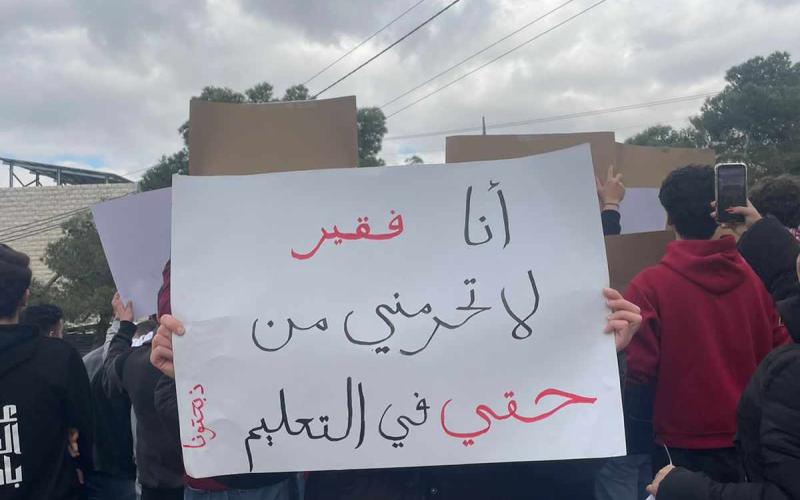 أنا فقير
لا تحرمني من
حقي في التعليم
ذبحتونا